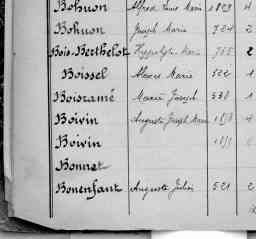 Bohuon Alfred Louis Marie 1829 4
Bohuon Joseph Marie 724 2
Bois-Berthelot Hippolyte Marie 755 2
Boissel Alexis Marie 522 1
Boisramé Marie Joseph 530 1
Boivin Auguste Joseph Marie
Boivin
Bonnet
Bonenfant Auguste Julien 521 2